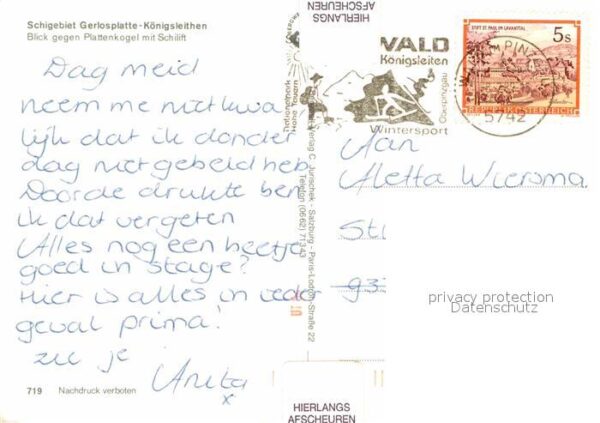 Schigebiet Gerlosplatte-Königsleithen
Blick gegen Plattenkogel mit Schilift
Dag meid
neem me niet kwa
lijk dat ik donder
dag niet gebeld heb
Door de drukte ben
ik dat vergeten
Alles nog een beetje
goed in stage?
Hier is alles in ieder
geval prima!
zie je
Anita
x
719 Nachdruck verboten
HIERLANGS
AFSCHEUREN
Nationalpark
Hohe Tauern
VALD
Königsleiten
Oberpinzgau
Wintersport
5742
STIFT ST. PAUL IM LAVANTTAL
5s
REPUBLIK ÖSTERREICH
Verlag C. Jurischek - Salzburg - Paris-Lodron-Straße 22
Telefon (0662) 71343
Aan
Aletta Wiersma
Sti
93
privacy protection
Datenschutz
HIERLANGS
AFSCHEUREN